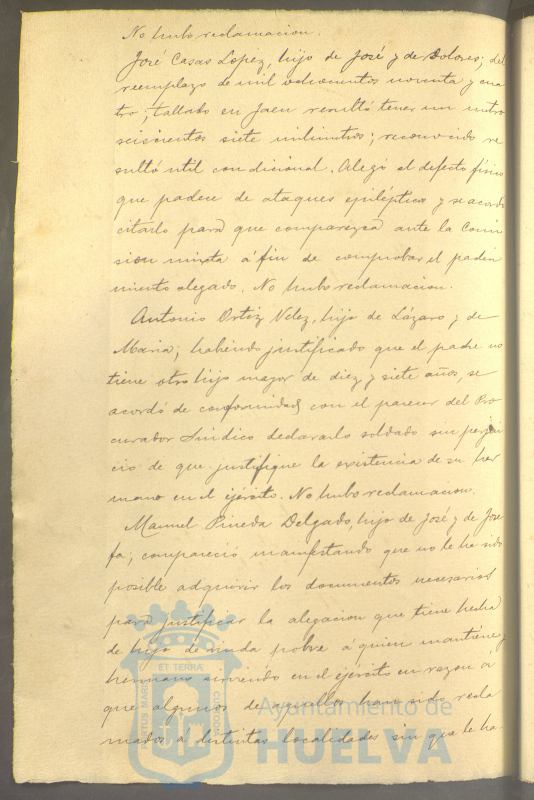 No hubo reclamacion.
José Casas Lopez, hijo de José y de Dolores; del
reemplazo de mil ochocientos noventa y cua
tro; tallado en Jaen resultó tener un metro
seiscientos siete milimetros; reconocido re
sultó util condicional. Alegó el defecto fisico
que padece de ataques epilépticos y se acordó
citarlo para que comparezca ante la Comi
sion mixta á fin de comprobar el padeci
miento alegado. No hubo reclamacion.
Antonio Ortiz Velez, hijo de Lázaro y de
Maria; habiendo justificado que el padre no
tiene otro hijo mayor de diez y siete años, se
acordó de conformidad con el parecer del Pro
curador Sindico declararlo soldado sin perjui
cio de que justifique la existencia de su her
mano en el ejército. No hubo reclamacion.
Manuel Pineda Delgado, hijo de José y de Jose
fa; compareció manifestando que no le ha sido
posible adquirir los documentos necesarios
para justificar la alegacion que tiene hecha
de hijo de viuda pobre á quien mantiene y
hermano sirviendo en el ejército en razon a
que algunos de aquellos han sido recla
mados á distintas localidades sin que le ha-
ET TERRA
PORTUS MARIS
CUSTODIA
Ayuntamiento de
HUELVA